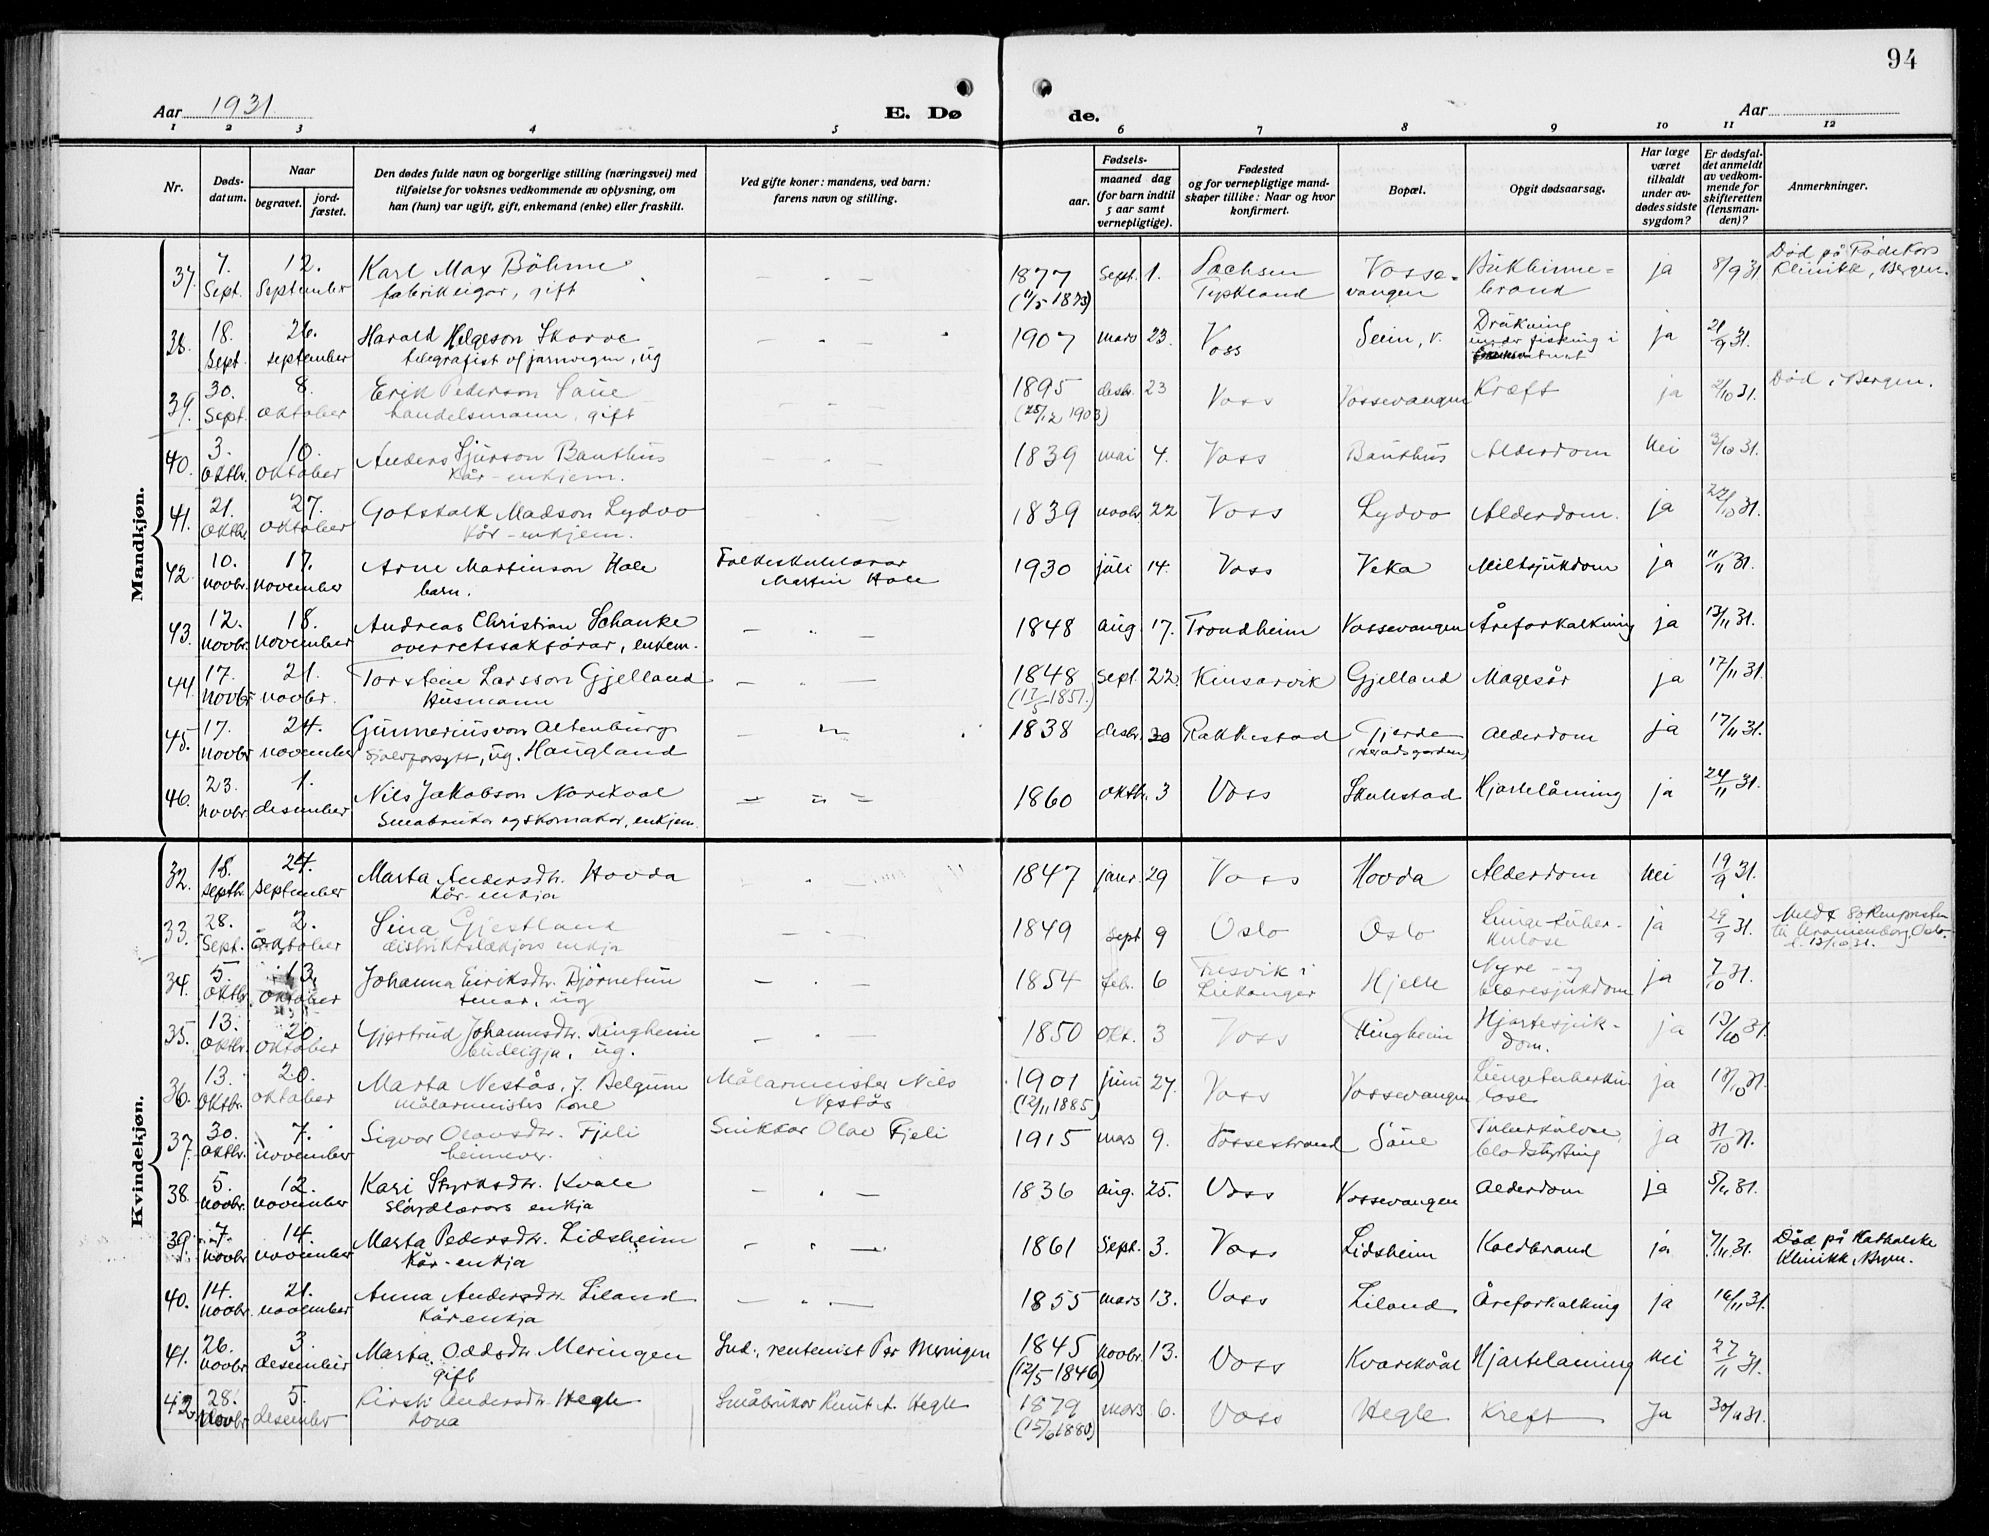 94
Aar 1931
E. Dø
de.
Aar
1 2 3 4 5 6 7 8 9 10 11 12
Nr.
Døds-
datum.
Naar
begravet.
jord-
fæstet.
Den dødes fulde navn og borgerlige stilling (næringsvei) med
tilføielse for voksnes vedkommende av oplysning, om
han (hun) var ugift, gift, enkemand (enke) eller fraskilt.
Ved gifte koner: mandens, ved barn:
farens navn og stilling.
Fødsels-
aar.
maaned dag
(for barn indtil
5 aar samt
vernepligtige).
Fødested
og for vernepligtige mand-
skaper tillike: Naar og hvor
konfirmert.
Bopæl.
Opgit dødsaarsag.
Har læge
været
tilkaldt
under av-
dødes sidste
sygdom?
Er dødsfal-
det anmeldt
av vedkom-
mende for
skifteretten
(lensman-
den)?
Anmerkninger.
Mandkjøn.
37. 7. Sept. 12. September Karl Max Böhme 1877 Sept. 1. Sachsen Vosse- Bukhinne- ja 8/9 31 Død på Rødekors
fabrikeigar, gift (11/5 1873) Tyskland vangen brand Klinikk, Bergen.
38. 18. Sept. 26. september Harald Helgeson Skorve 1907 mars 23. Voss Seim, v. Drukning ja 21/9 31.
telegrafist v/ jarnvegen, ug under fisking i
39. 30. Sept. 8. oktober Erik Pederson Saue 1895 desbr. 23 Voss Vossevangen Kræft ja 2/10 31. Død i Bergen.
handelsmann, gift (28/12 1903)
40. 3. oktbr. 10. oktober Anders Sjurson Bauthus 1839 mai 4. Voss Bauthus Alderdom nei 3/10 31.
Kår-enkjem.
41. 21. oktbr. 27. oktober Gotskalk Madson Lydvo 1839 novbr. 22 Voss Lydvo Alderdom. ja 22/10 31.
kår-enkjem.
42. 10. novbr. 17. november Arne Martinson Hole Folkeskulelærar 1930 juli 14. Voss Veka Miltsjukdom ja 11/11 31.
barn. Martin Hole
43. 12. novbr. 18. november Andreas Christian Schanke 1848 aug. 17. Trondheim Vossevangen Åreforkalkning ja 13/11 31.
overretssakførar, enkem.
44. 17. novbr. 21. novbr. Torstein Larsson Gjelland 1848 Sept. 22. Kinsarvik Gjelland Magesår ja 17/11 31.
Husmann (17/5 1851.)
45. 17. novbr. 24. november Gunnerius von Altenburg 1838 desbr. 30 Rakkestad Gjerde Alderdom ja 17/11 31.
sjølvforsytt, ug. Haugland (Heradsgarden)
46. 23. novbr. 1. desember Nils Jakobson Norekval 1860 oktbr. 3 Voss Skulestad Hjartelåming ja 24/11 31.
Småbrukar og skomakar, enkjem.
Kvindekjøn.
32. 18. septbr. 24. september Marta Andersdtr. Hovda 1847 janr. 29 Voss Hovda Alderdom nei 19/9 31.
Kår-enkja
33. 28. Sept. 2. oktober Lina Gjestland 1849 sept 9 Oslo Oslo Lungetuber- ja 29/9 31. Meldt Soknepresten
distriktslækjars enkja kulose til Uranienborg, Oslo
34. 5. oktbr. 13. oktober Johanna Eiriksdtr. Bjørnetun 1854 feb. 6 Fresvik i Hjelle Nyre- og ja 7/10 31.
tenar, ug Leikanger blæresjukdom
35. 13. oktbr. 20. oktober Gjertrud Johannesdtr. Ringheim 1850 okt. 3 Voss Ringheim Hjartesjuk- ja 13/10 31.
budeigja, ug. dom.
36. 13. oktbr. 20. oktober Marta Nestås, f. Belgum Målarmeister Nils 1901 juni 27. Voss Vossevangen Lungetuberku- ja 13/10 31.
målarmeisters kone Nestås (12/11 1885) lose
37. 30. oktbr. 7. november Sigvor Olavsdtr. Fjeli Snikkar Olav Fjeli 1915 mars 9. Vossestrand Saue Tuberkulose, ja 31/10 31.
heimever. blodstyrting
38. 5. novbr. 12. november Kari Styrksdtr. Kvale 1836 aug. 25. Voss Vossevangen Alderdom ja 5/11 31.
Sløydlærars enkja
39. 7. novbr. 14. november Marta Pedersdtr. Lidsheim 1861 Sept. 3. Voss Lidsheim Koldbrand ja 7/11 31. Død på Katholske
Kår-enkja Klinikk, Bergen.
40. 14. novbr. 21. november Anna Andersdtr. Liland 1855 mars 13. Voss Liland Åreforkalking ja 16/11 31.
Kårenkja
41. 26. novbr. 3. desember Marta Oddsdtr. Meringen Ind., rentenist Per Meringen 1845 novbr. 13. Voss Kvarekvål Hjartelaming nei 27/11 31.
gift (12/5-1846)
42. 28. Novbr. 5. desember Kirsti Andersdtr. Hegle Småbrukar Knut A. Hegle 1879 mars 6. Voss Hegle Kreft Ja 30/11 31.
kona (15/6 1880)